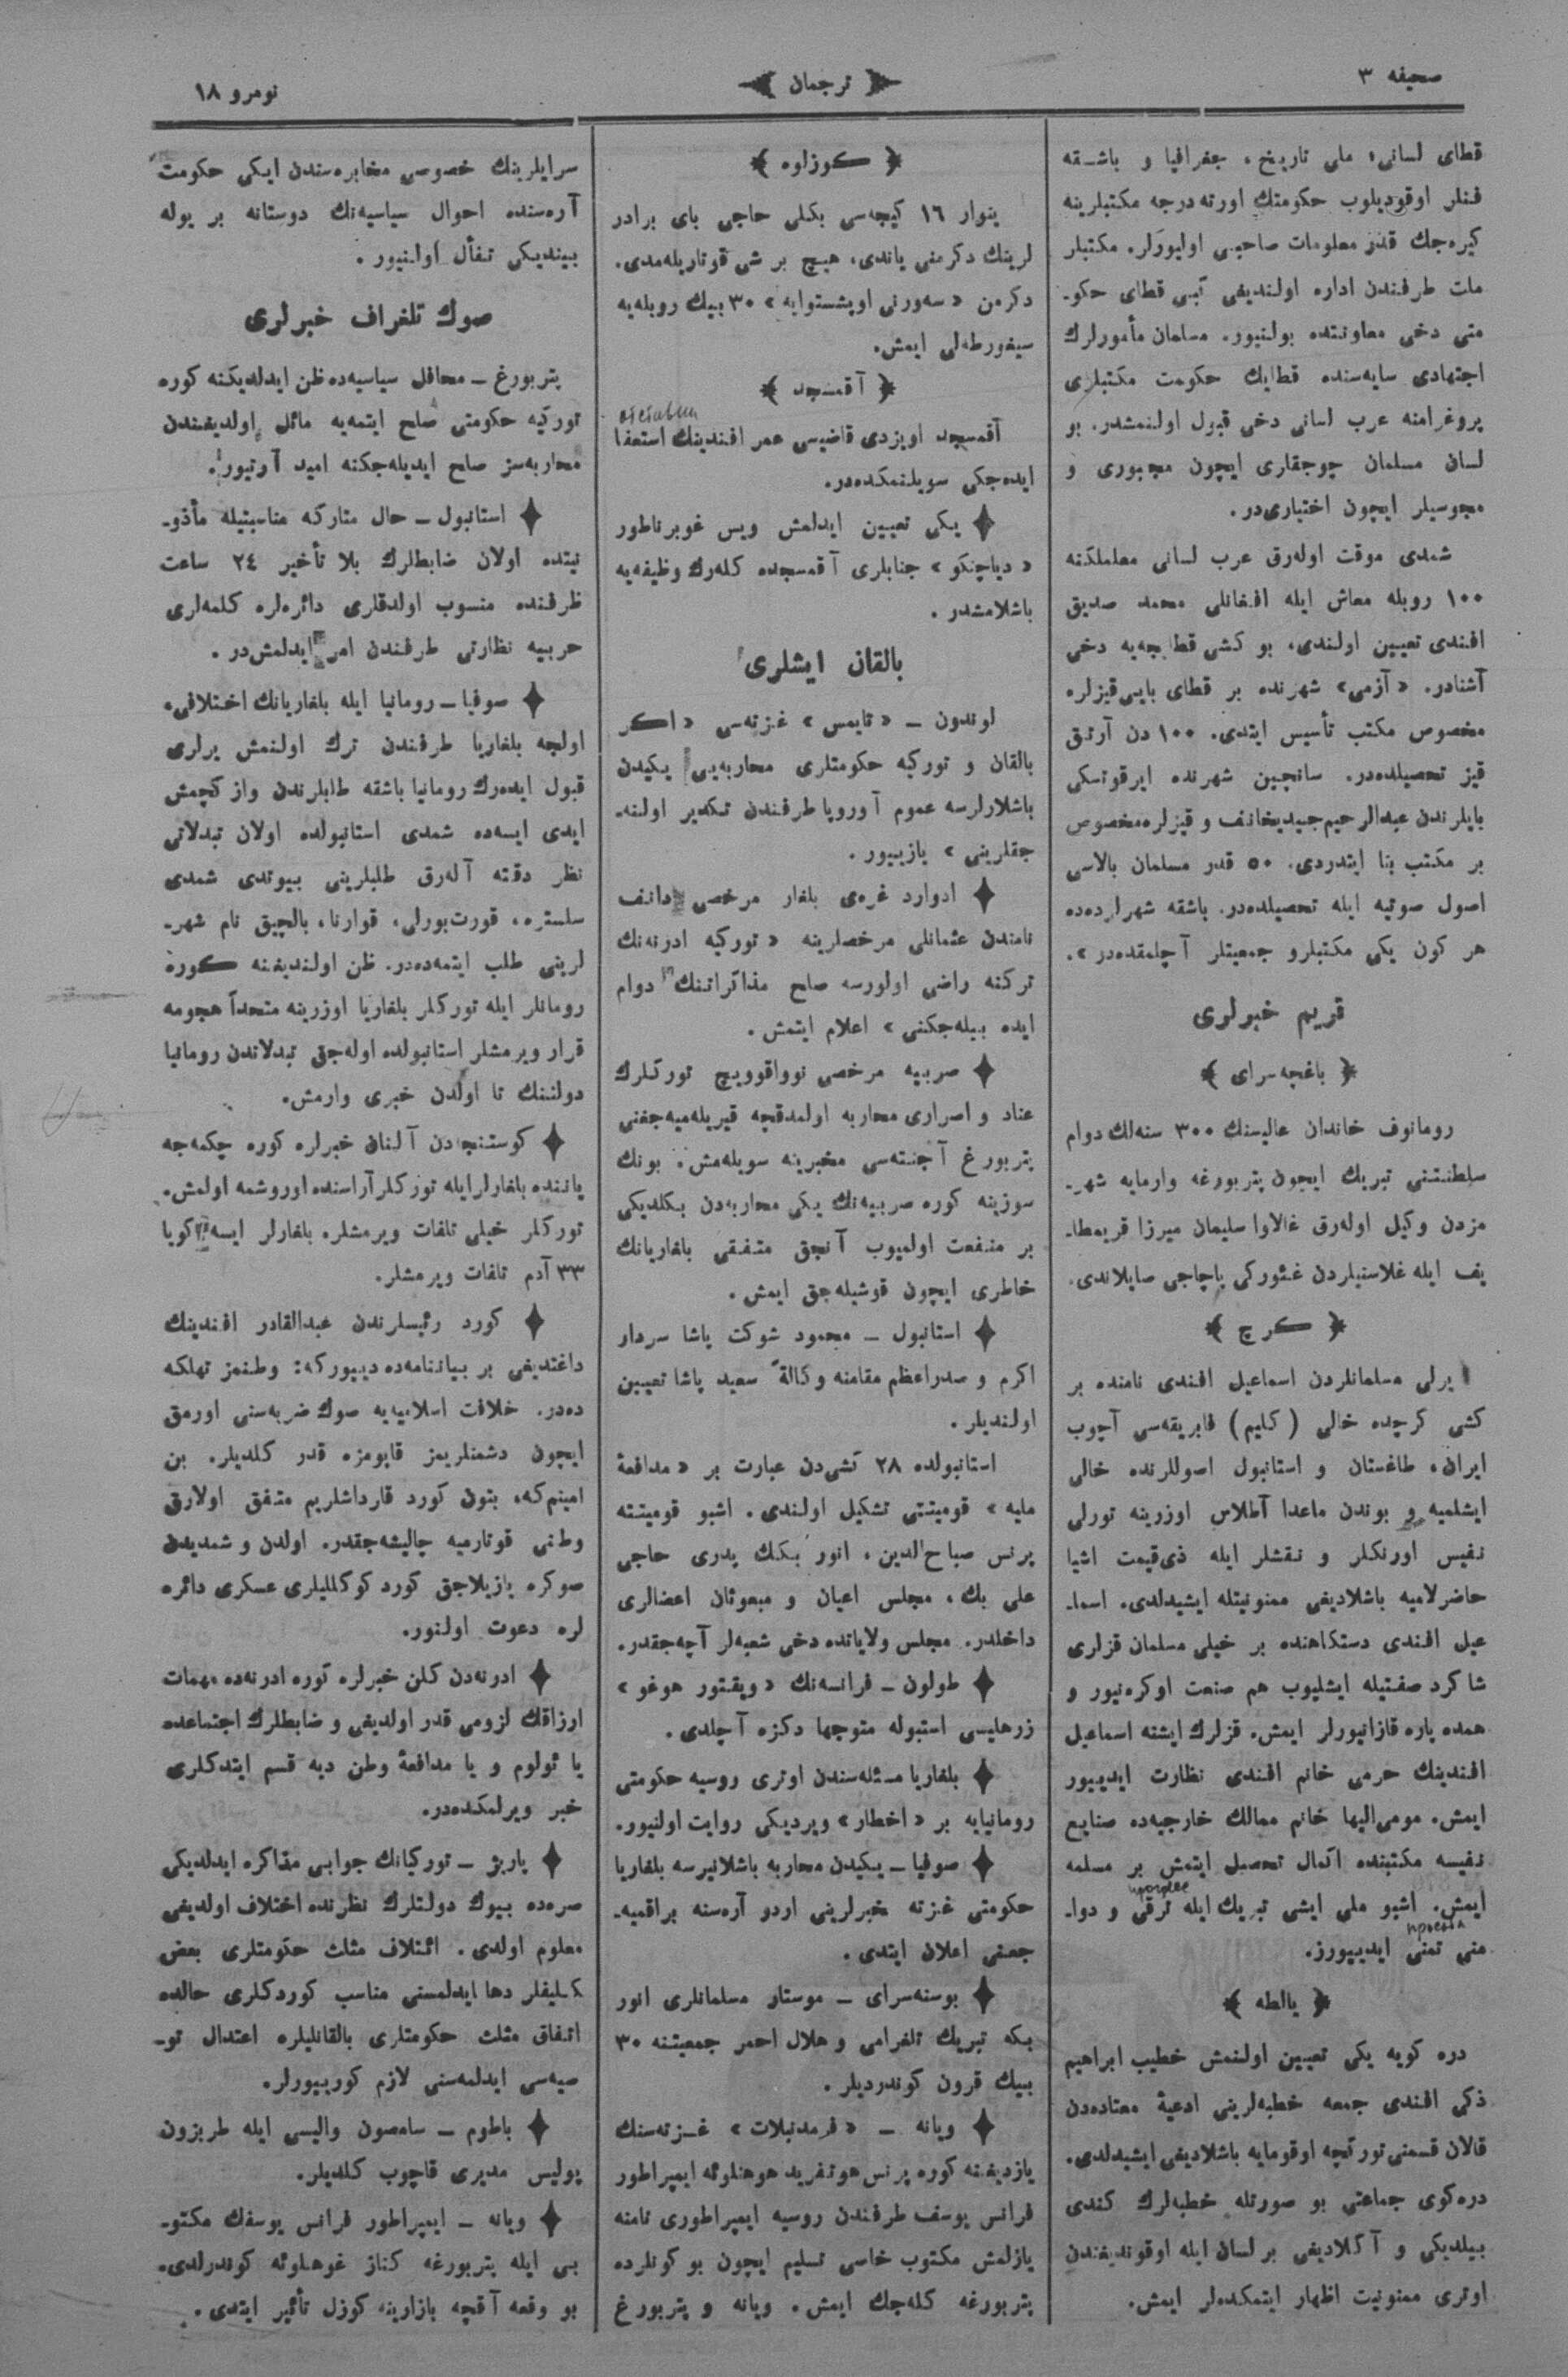 صحیفه ٣
ترجمان
نومرو ١٨
قطای لسانی، ملی تاریخ، جغرافیا و باشقه
فنلر اوقودیلوب حکومتك اورته درجه مکتبلرینه
کیره‌جك قدر معلومات صاحبی اولیورلر. مکتبلر
ملت طرفندن اداره اولندیغی کبی قطای حکو-
متی دخی معاونتده بولنیور. مسلمان مأمورلرك
اجتهادی سایه‌سنده قطایك حکومت مکتبلری
پروغرامنه عرب لسانی دخی قبول اولنمشدر. بو
لسان مسلمان چوجقلری ایچون مجبوری و
مجوسیلر ایچون اختیاری‌در.
شمدی موقت اوله‌رق عرب لسانی معلملکنه
١٠٠ روبله معاش ایله افغانلی محمد صدیق
افندی تعیین اولندی، بو کشی قطایچه‌یه دخی
آشنادر. «آزمی» شهرنده بر قطای بایی قیزلره
مخصوص مکتب تأسیس ایتدی. ١٠٠ دن آرتق
قیز تحصیلده‌در. سانچین شهرنده ایرقوتسکی
بایلرندن عبدالرحیم جیدیخانف و قیزلره مخصوص
بر مکتب بنا ایتدردی. ٥٠ قدر مسلمان بالاسی
اصول صوتیه ایله تحصیلده‌در. باشقه شهرلرده‌ده
هر کون یکی مکتبلرو جمعیتلر آچلمقده‌در».
قریم خبرلری
﴿ باغچه‌سرای ﴾
رومانوف خاندان عالیسنك ٣٠٠ سنه‌لك دوام
سلطنتنی تبریك ایچون پتربورغه وارمایه شهر-
مزدن وکیل اوله‌رق غالاوا سلیمان میرزا قریمطا-
یف ایله غلاسنیلردن غئورکی پاچاجی صایلاندی.
﴿ کرچ ﴾
یرلی مسلمانلردن اسماعیل افندی نامنده بر
کشی کرچده خالی (کلیم) فابریقه‌سی آچوب
ایران، طاغستان و استانبول اصوللرنده خالی
ایشلمیه و بوندن ماعدا آطلاس اوزرینه تورلی
نفیس اورنکلر و نقشلر ایله ذی‌قیمت اشیا
حاضرلامیه باشلادیغی ممنونیتله ایشیدلدی. اسما-
عیل افندی دستکاهنده بر خیلی مسلمان قزلری
شاکرد صفتیله ایشلیوب هم صنعت اوکره‌نیور و
همده پاره قازانیورلر ایمش. قزلرك ایشنه اسماعیل
افندینك حرمی خانم افندی نظارت ایدییور
ایمش. مومی‌الیها خانم ممالك خارجیه‌ده صنایع
نفیسه مکتبنده اکمال تحصیل ایتمش بر مسلمه
ایمش. اشبو ملی ایشی تبریك ایله ترقی و دوا-
منی تمنی ایدییورز.
﴿ یالطه ﴾
دره کویه یکی تعیین اولنمش خطیب ابراهیم
ذکی افندی جمعه خطبه‌لرینی ادعیهٔ معتاده‌دن
قالان قسمنی تورکچه اوقومایه باشلادیغی ایشیدلدی.
دره‌کوی جماعتی بو صورتله خطبه‌لرك کندی
بیلدیکی و آکلادیغی بر لسان ایله اوقوندیغندن
اوتری ممنونیت اظهار ایتمکده‌لر ایمش.
﴿ کوزلوه ﴾
ینوار ١٦ کیچه‌سی بکلی حاجی بای برادر
لرینك دکرمنی یاندی، هیچ بر شی قوتاریله‌مدی.
دکرمن «سه‌ورنی اوبشستوایه» ٣٠ بیك روبله‌یه
سیغورطه‌لی ایمش.
﴿ آقمسجد ﴾
آقمسجد اویزدی قاضیسی عمر افندینك استعفا
ایده‌جکی سویلنمکده‌در.
یکی تعیین ایدلمش ویس غوبرناطور
«دیاچنکو» جنابلری آقمسجده کله‌رك وظیفه‌یه
باشلامشدر.
بالقان ایشلری
لوندون ـ «تایمس» غزته‌سی «اکر
بالقان و تورکیه حکومتلری محاربه‌یی یکیدن
باشلارلرسه عموم آوروپا طرفندن تکدیر اولنه-
جقلرینی» یازییور.
ادوارد غره‌ی بلغار مرخصی دانف
نامندن عثمانلی مرخصلرینه «تورکیه ادرنه‌نك
ترکنه راضی اولورسه صلح مذاکراتنك دوام
ایده بیله‌جکنی» اعلام ایتمش.
صربیه مرخصی نوواقوویچ تورکلرك
عناد و اصراری محاربه اولمدقچه قیریله‌میه‌جغنی
پتربورغ آجنته‌سی مخبرینه سویله‌مش. بونك
سوزینه کوره صربیه‌نك یکی محاربه‌دن بکلدیکی
بر منفعت اولمیوب آنجق متفقی بلغاریانك
خاطری ایچون قوشیله‌جق ایمش.
استانبول ـ محمود شوکت پاشا سردار
اکرم و صدراعظم مقامنه وکالةً سعید پاشا تعیین
اولندیلر.
استانبولده ٢٨ کشی‌دن عبارت بر «مدافعهٔ
ملیه» قومیتتی تشکیل اولندی. اشبو قومیتته
پرنس صباح‌الدین، انور بکك پدری حاجی
علی بك، مجلس اعیان و مبعوثان اعضالری
داخلدر. مجلس ولایاتده دخی شعبه‌لر آچه‌جقدر.
طولون ـ فرانسه‌نك «ویقتور هوغو»
زرهلیسی استبوله متوجها دکزه آچلدی.
بلغاریا مسئله‌سندن اوتری روسیه حکومتی
رومانیایه بر «اخطار» ویردیکی روایت اولنیور.
صوفیا ـ یکیدن محاربه باشلانیرسه بلغاریا
حکومتی غزته خبرلرینی اردو آره‌سنه براقمیه-
جغنی اعلان ایتدی.
بوسنه‌سرای ـ موستار مسلمانلری انور
بکه تبریك تلغرامی و هلال احمر جمعیتنه ٣٠
بیك قرون کوندردیلر.
ویانه ـ «فرمدنبلات» غزته‌سنك
یازدیغنه کوره پرنس هوتفرید هوهنلوئه ایمپراطور
فرانس یوسف طرفندن روسیه ایمپراطوری نامنه
یازلمش مکتوب خاصی تسلیم ایچون بو کونلرده
پتربورغه کله‌جك ایمش. ویانه و پتربورغ
سرایلرینك خصوصی مخابره‌سندن ایکی حکومت
آره‌سنده احوال سیاسیه‌نك دوستانه بر یوله
بیندیکی تفأل اولنیور.
صوك تلغراف خبرلری
پتربورغ ـ محافل سیاسیه‌ده ظن ایدلدیکنه کوره
تورکیه حکومتی صلح ایتمه‌یه مائل اولدیغندن
محاربه‌سز صلح ایدیله‌جکنه امید آرتیور.
استانبول ـ حال متارکه مناسبتیله مأذو-
نیتده اولان ضابطلرك بلا تأخیر ٢٤ ساعت
ظرفنده منسوب اولدقلری دائره‌لره کلمه‌لری
حربیه نظارتی طرفندن امر ایدلمش‌در.
صوفیا ـ رومانیا ایله بلغاریانك اختلافی،
اولجه بلغاریا طرفندن ترك اولنمش یرلری
قبول ایده‌رك رومانیا باشقه طلبلرندن واز کچمش
ایدی ایسه‌ده شمدی استانبولده اولان تبدلاتی
نظر دقته آله‌رق طلبلرینی بیوتدی شمدی
سلستره، قورت‌بورلی، قوارنا، بالچیق نام شهر-
لرینی طلب ایتمه‌ده‌در. ظن اولندیغنه کوره
رومانلر ایله تورکلر بلغاریا اوزرینه متحداً هجومه
قرار ویرمشلر استانبولده اوله‌جق تبدلاتدن رومانیا
دولتنك تا اولدن خبری وارمش.
کوستنجه‌دن آلنان خبرلره کوره چکمه‌جه
یاننده بلغارلر ایله تورکلر آراسنده اوروشمه اولمش.
تورکلر خیلی تلفات ویرمشلر. بلغارلر ایسه کویا
٣٣ آدم تلفات ویرمشلر.
کورد رئیسلرندن عبدالقادر افندینك
داغتدیغی بر بیاننامه‌ده دییورکه: وطنمز تهلکه
ده‌در. خلافت اسلامیه‌یه صوك ضربه‌سنی اورمق
ایچون دشمنلریمز قاپومزه قدر کلدیلر. بن
امینم‌که، بتون کورد قارداشلریم متفق اولارق
وطنی قوتارمیه چالیشه‌جقدر. اولدن و شمدیدن
صوکره یازیلاجق کورد کوکللیلری عسکری دائره
لره دعوت اولنور.
ادرنه‌دن کلن خبرلره کوره ادرنه‌ده مهمات
ارزاقك لزومی قدر اولدیغی و ضابطلرك اجتماعده
یا ئولوم و یا مدافعهٔ وطن دیه قسم ایتدکلری
خبر ویرلمکده‌در.
پاریژ ـ تورکیانك جوابی مذاکره ایدلدیکی
صره‌ده بیوك دولتلرك نظرنده اختلاف اولدیغی
معلوم اولدی. ائتلاف مثلث حکومتلری بعض
تکلیفلر دها ایدلمسنی مناسب کوردکلری حالده
اتفاق مثلث حکومتلری بالقانلیلره اعتدال تو-
صیه‌سی ایدلمه‌سنی لازم کورییورلر.
باطوم ـ سامصون والیسی ایله طربزون
پولیس مدیری قاچوب کلدیلر.
ویانه ـ ایمپراطور فرانس یوسفك مکتو-
بی ایله پتربورغه کناز غوهلوئه کوندرلدی.
بو وقعه آقچه بازارینه کوزل تأثیر ایتدی.